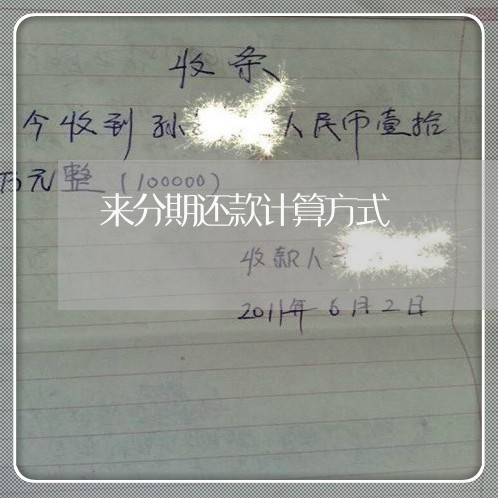 收条
今收到孙 人民币壹拾
万元整（100000）
来分期还款计算方式
收款人
2011年6月2日